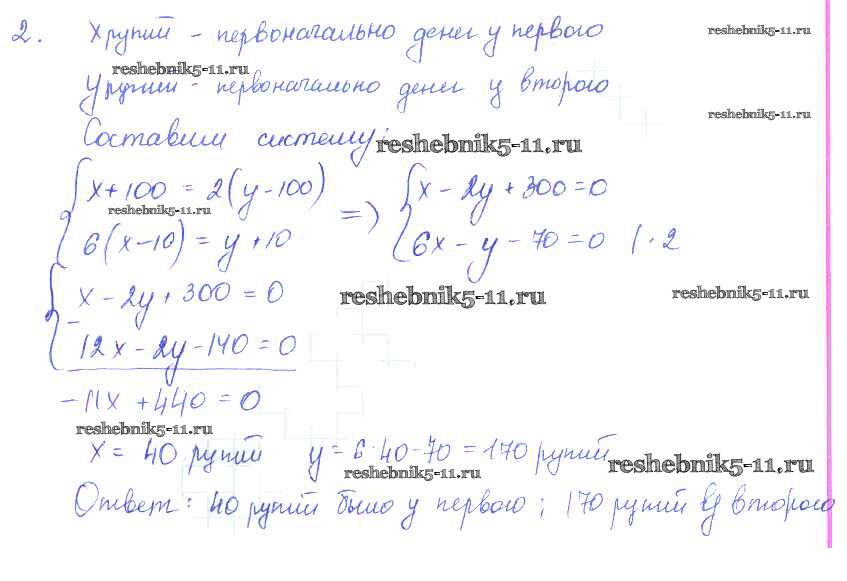 2. х рупий - первоначально денег у первого
reshebnik5-11.ru
reshebnik5-11.ru
у рупий - первоначально денег у второго
reshebnik5-11.ru
Составим систему:
reshebnik5-11.ru
{ x + 100 = 2(y - 100) => { x - 2y + 300 = 0
reshebnik5-11.ru
{ 6(x - 10) = y + 10 { 6x - y - 70 = 0 | · 2
{ x - 2y + 300 = 0
reshebnik5-11.ru
reshebnik5-11.ru
- { 12x - 2y - 140 = 0
-11x + 440 = 0
reshebnik5-11.ru
x = 40 рупий y = 6·40-70 = 170 рупий
reshebnik5-11.ru
reshebnik5-11.ru
Ответ: 40 рупий было у первого; 170 рупий у второго